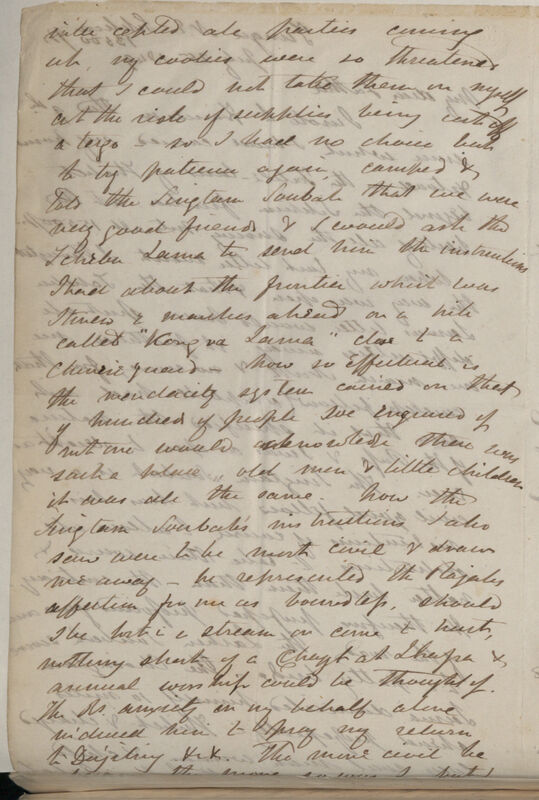 intercepted all parties coming
up, my coolies were so threatened
that I could not take them on myself
at the risk of supplies being cut off
a tergo so I had no choice but
to try patience again, camped &
told the Singtam Soubah that we were
very good friends & I would ask the
Tcheba Lama to send him the instructions
I had about the frontier which was
I knew 2 marches ahead on a hill
called "Kongra Lama" close to a
Chinese guard — now so effectual is
the mendacity system carried on that
of hundreds of people we enquired of
not one would acknowledge there was
such a place, old men & little children
it was all the same. Now the
Singtam Soubah's instructions I also
saw were to be most civil & draw
me away — he represented the Rajah's
affection for me as boundless, should
I be lost in a stream or come to hurt,
nothing short of a Chayt at Lhassa &
annual worship could be thought of.
The Rs anxiety on my behalf alone
induced him to pray my return
to Darjiling &c &c. The more civil he
the more I